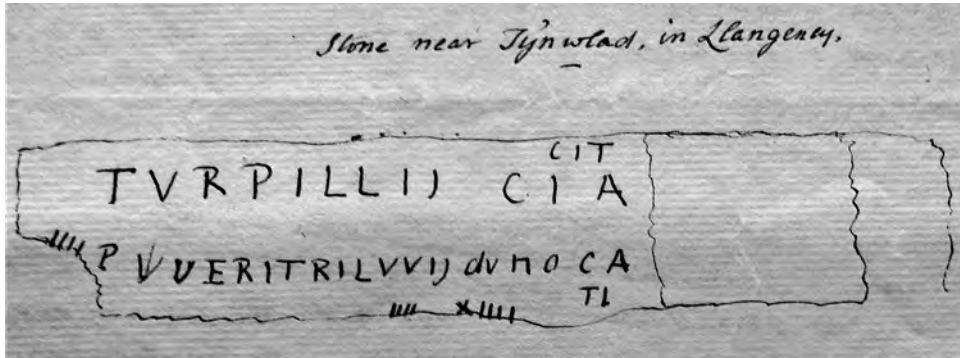 Stone near Tŷn wlad, in Llangeney.
CIT
TVRPILLIJ CIA
PVUERITRILVVIJ dvno CA
TI